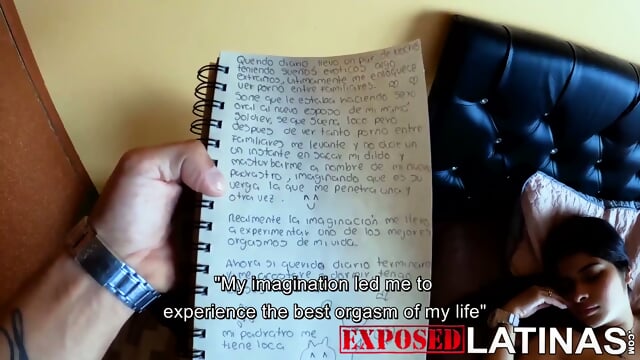 Querido diario, llevo un par de noches
teniendo sueños eróticos algo
extraños, ultimamente me enloquece
ver porno entre familiares.
Soñe que le estaba haciendo sexo
oral al nuevo esposo de mi mamá
Soldier, se que suena loco pero
despues de ver tanto porno entre
Familiares me levante y no
un instante en sacar mi dildo y
masturbarme a nombre de mi nuevo
padrastro, imaginando que es su
verga la que me penetra una y
otra vez.
Realmente la imaginación me llevo
a experimentar uno de los mejores
orgasmos de mi vida.
Ahora si querido diario
"My imagination led me to
experience the best orgasm of my life"
mi padrastro me
tiene loca
EXPOSED LATINAS.COM